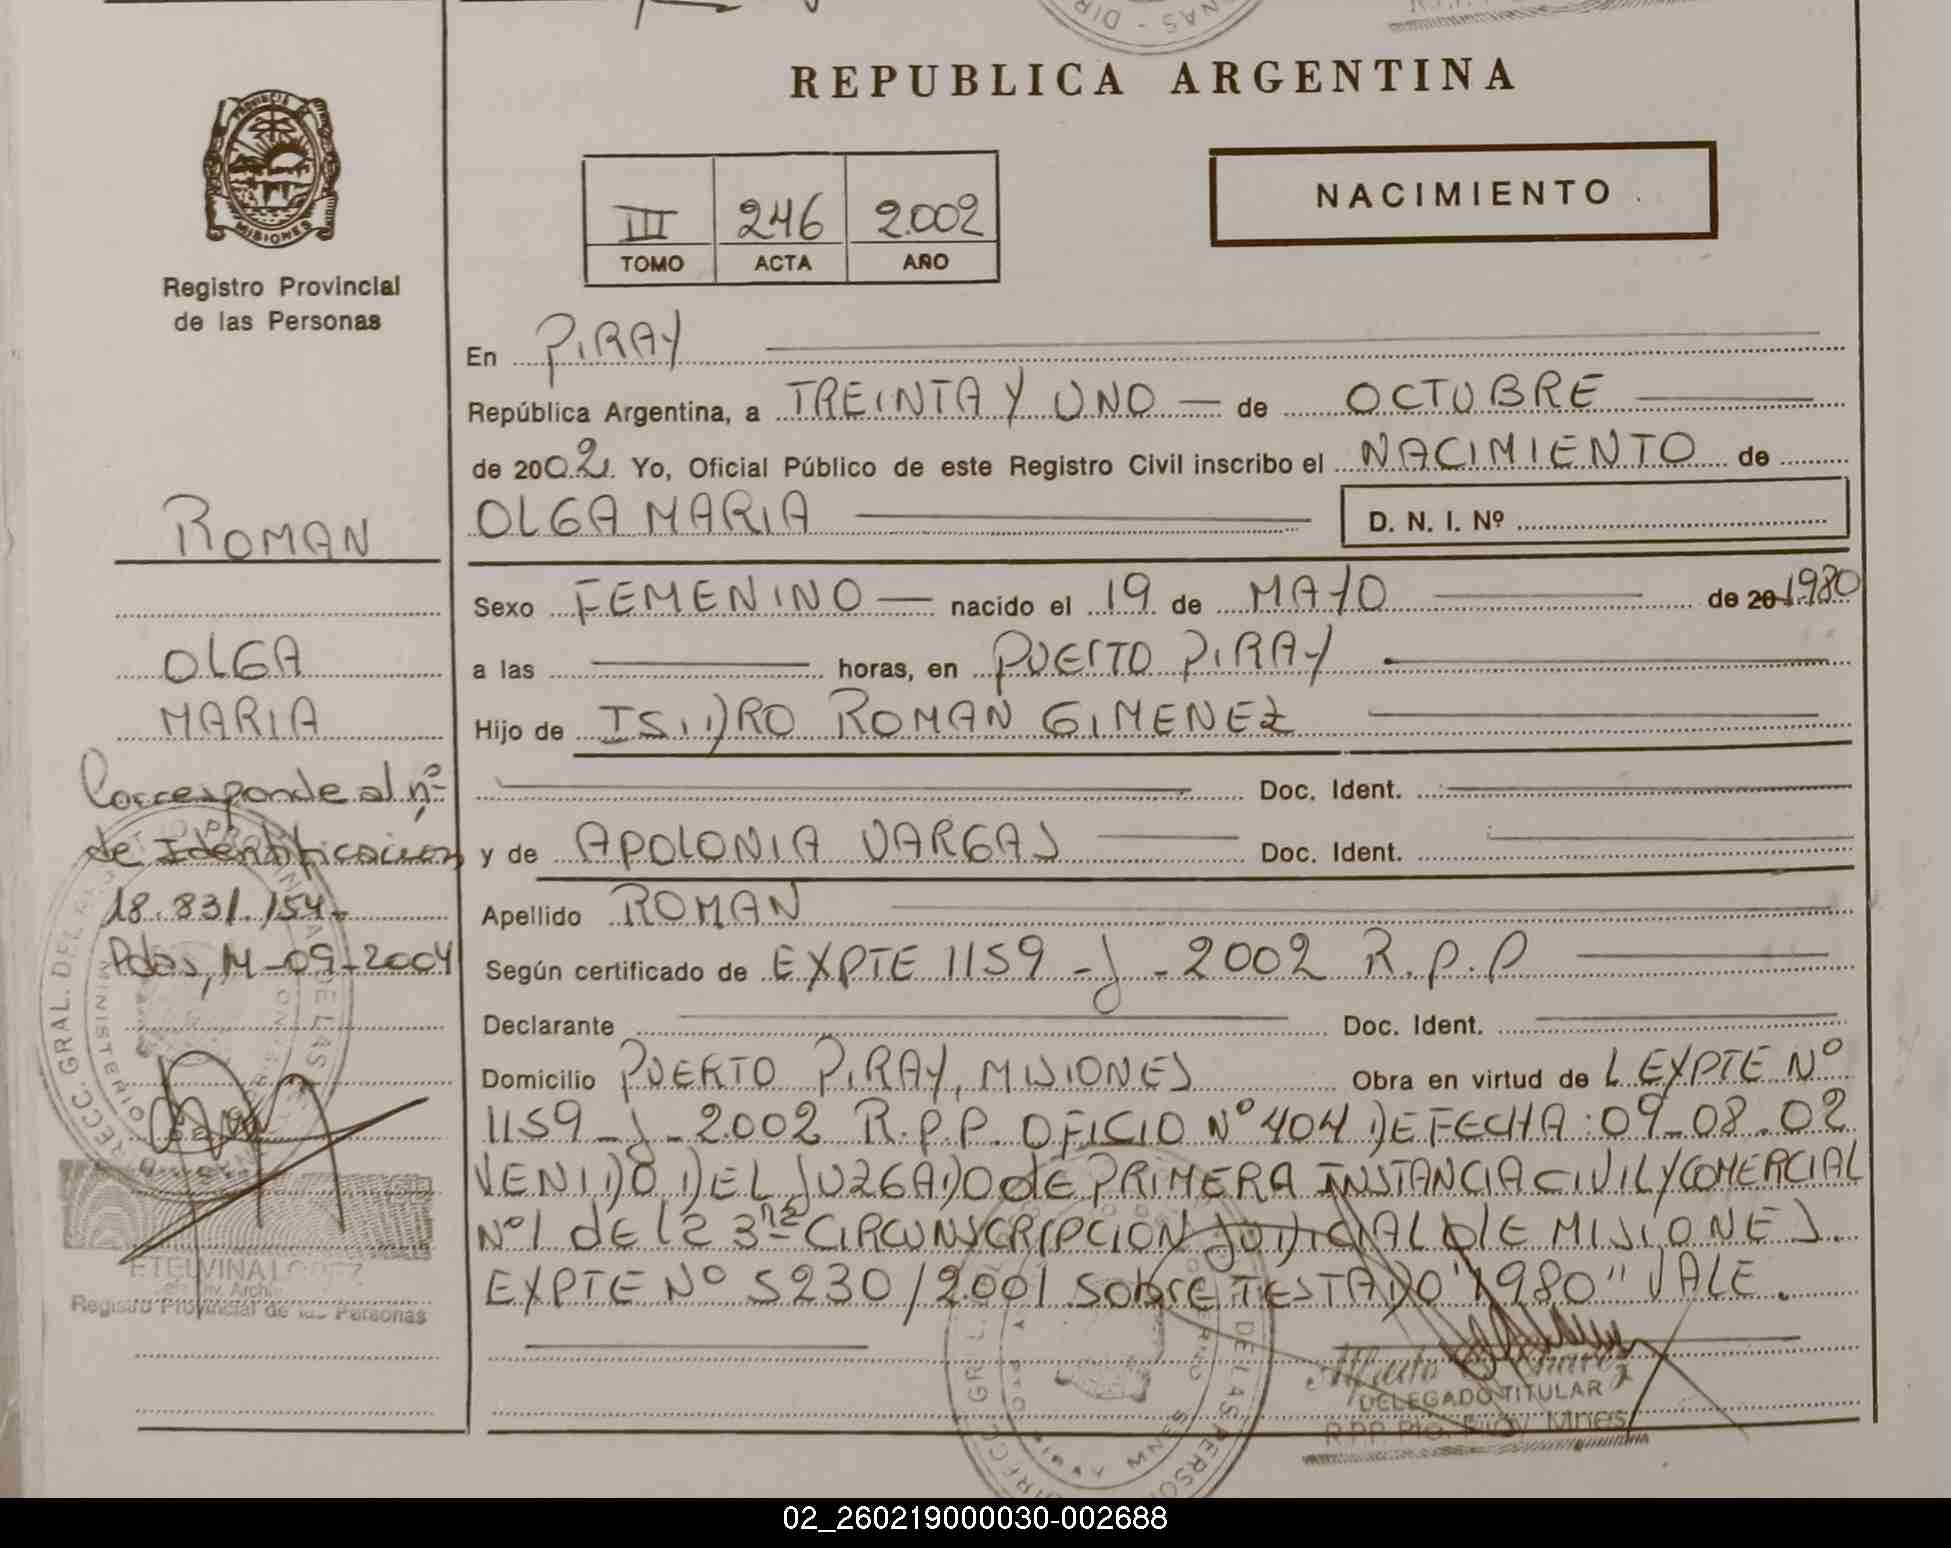 REPUBLICA ARGENTINA
PROVINCIA
MISIONES
Registro Provincial
de las Personas
III 246 2.002
TOMO ACTA AÑO
NACIMIENTO
En PIRAY
República Argentina, a TREINTA Y UNO de OCTUBRE
de 2002. Yo, Oficial Público de este Registro Civil inscribo el NACIMIENTO de
OLGA MARIA
D. N. I. Nº
ROMAN
OLGA
MARIA
Corresponde al nº
de Identificacion
18.831.154-
Pdas, 14-09-2004
Sexo FEMENINO nacido el 19 de MAYO de 20 1980
a las horas, en PUERTO PIRAY
Hijo de ISIDRO ROMAN GIMENEZ
Doc. Ident.
y de APOLONIA VARGAS Doc. Ident.
Apellido ROMAN
Según certificado de EXPTE 1159-J-2002 R.P.P
Declarante Doc. Ident.
Domicilio PUERTO PIRAY, MISIONES Obra en virtud de L EXPTE Nº
1159-J-2002 R.P.P. OFICIO Nº 404 DE FECHA: 09-08.02
VENIDO DEL JUZGADO de PRIMERA INSTANCIA CIVIL Y COMERCIAL
Nº1 de la 3ra CIRCUNSCRIPCION JUDICIAL DE MISIONES.
EXPTE Nº 5230/2001 Sobre TESTADO "1980" VALE.
ETELVINA LOPEZ
Registro Provincial de las Personas
DELEGADO TITULAR
R.P.P. Pto. Piray Mnes
02_260219000030-002688